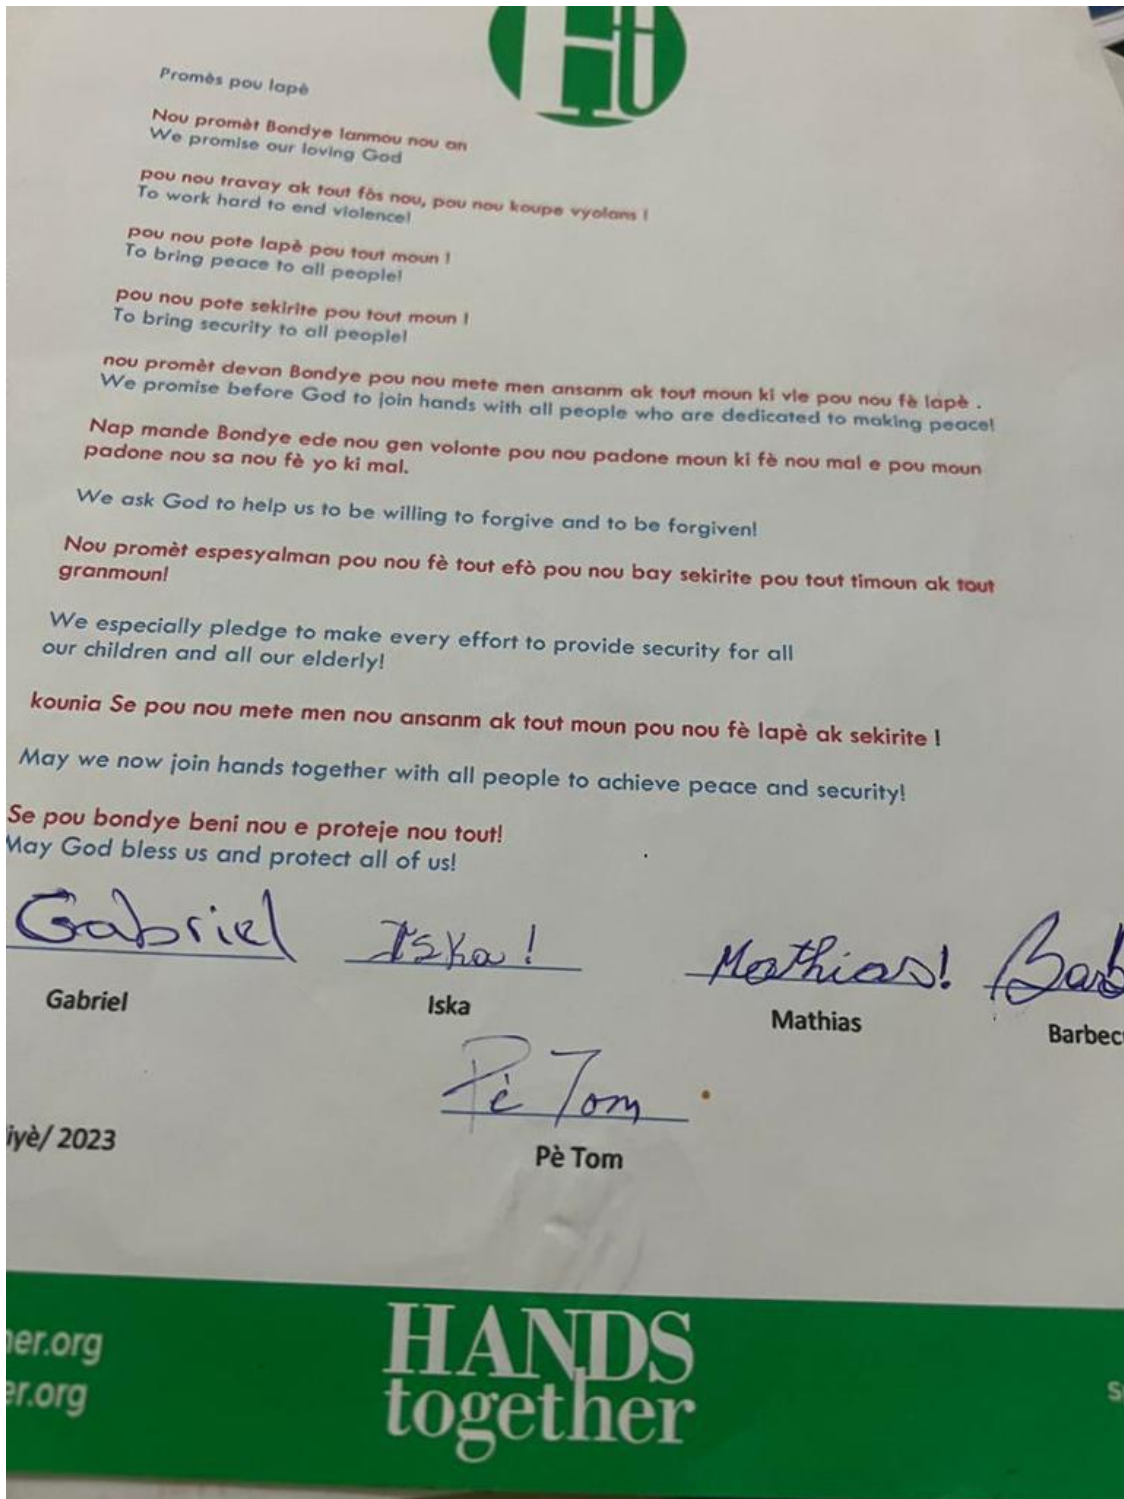 Ht
Promès pou lapè
Nou promèt Bondye lanmou nou an
We promise our loving God
pou nou travay ak tout fòs nou, pou nou koupe vyolans !
To work hard to end violence!
pou nou pote lapè pou tout moun !
To bring peace to all people!
pou nou pote sekirite pou tout moun !
To bring security to all people!
nou promèt devan Bondye pou nou mete men ansanm ak tout moun ki vle pou nou fè lapè .
We promise before God to join hands with all people who are dedicated to making peace!
Nap mande Bondye ede nou gen volonte pou nou padone moun ki fè nou mal e pou moun
padone nou sa nou fè yo ki mal.
We ask God to help us to be willing to forgive and to be forgiven!
Nou promèt espesyalman pou nou fè tout efò pou nou bay sekirite pou tout timoun ak tout
granmoun!
We especially pledge to make every effort to provide security for all
our children and all our elderly!
kounia Se pou nou mete men nou ansanm ak tout moun pou nou fè lapè ak sekirite !
May we now join hands together with all people to achieve peace and security!
Se pou bondye beni nou e proteje nou tout!
May God bless us and protect all of us!
Gabriel Iska! Mathias! Barb
Gabriel Iska Mathias Barbec
Pè Tom
Pè Tom
iyè/ 2023
HANDS
together
her.org
er.org